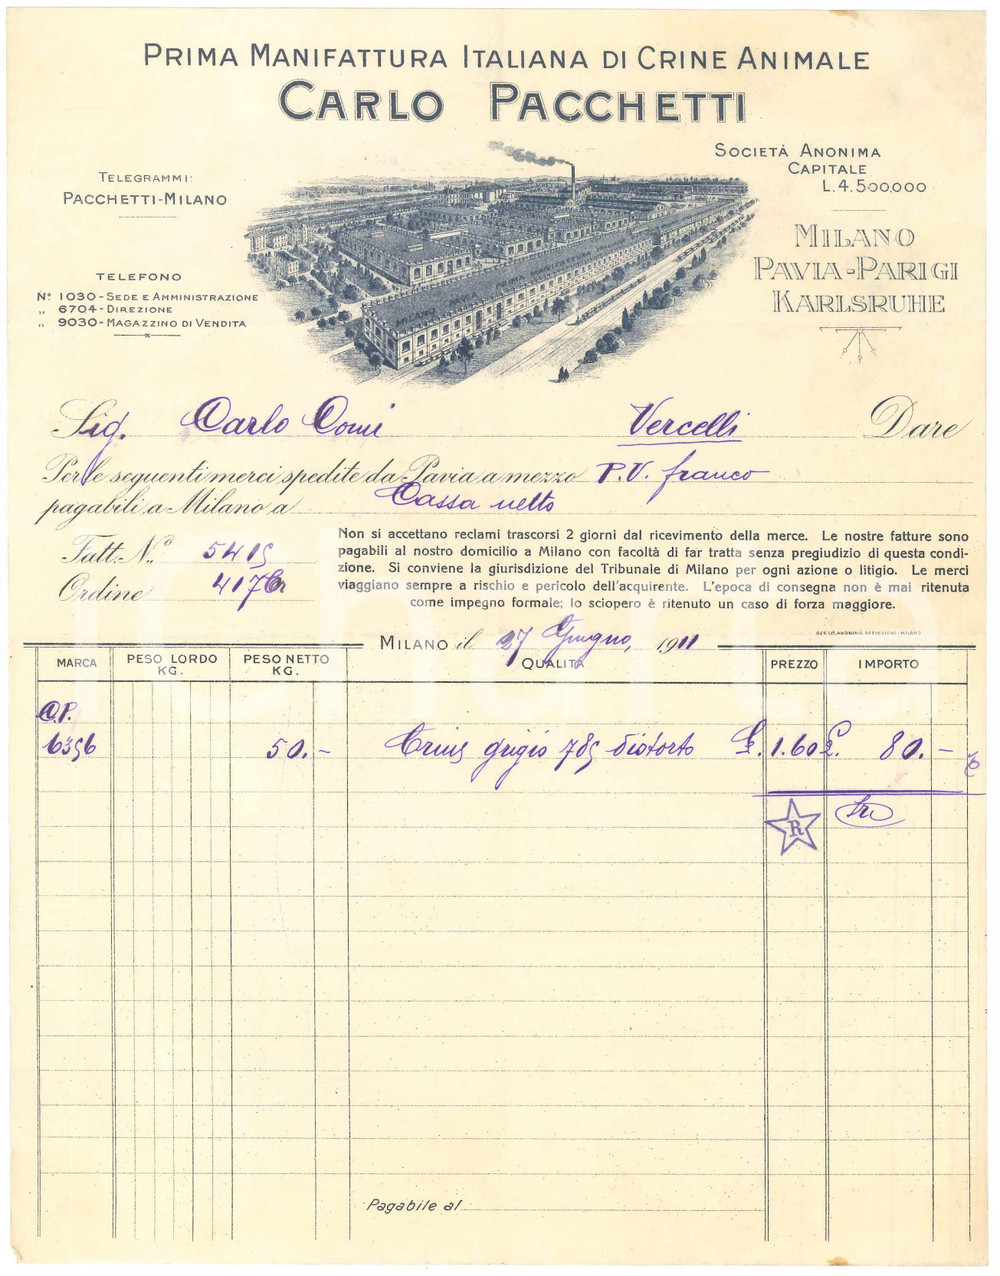 PRIMA MANIFATTURA ITALIANA DI CRINE ANIMALE
CARLO PACCHETTI
TELEGRAMMI:
PACCHETTI-MILANO
TELEFONO
N.i 1030 - SEDE E AMMINISTRAZIONE
„ 6704 - DIREZIONE
„ 9030 - MAGAZZINO DI VENDITA
SOCIETÀ ANONIMA
CAPITALE
L. 4.500,000
MILANO
PAVIA-PARIGI
KARLSRUHE
Sig. Carlo Comi Vercelli Dare
Per le seguenti merci spedite da Pavia a mezzo P.V. franco
pagabili a Milano a Cassa netto
Fatt. N.o 5415
Ordine 4176
Non si accettano reclami trascorsi 2 giorni dal ricevimento della merce. Le nostre fatture sono
pagabili al nostro domicilio a Milano con facoltà di far tratta senza pregiudizio di questa condi-
zione. Si conviene la giurisdizione del Tribunale di Milano per ogni azione o litigio. Le merci
viaggiano sempre a rischio e pericolo dell'acquirente. L'epoca di consegna non è mai ritenuta
come impegno formale; lo sciopero è ritenuto un caso di forza maggiore.
MILANO il 27 Giugno, 1911
MARCA PESO LORDO KG. PESO NETTO KG. QUALITÀ PREZZO IMPORTO
C.P.
6356 50.- Crine grigio 785 distorto £. 1.60 £. 80.-
R
Pagabile al